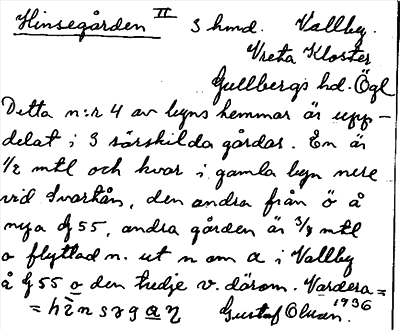 Hinsegården II 3 hmd. Vallby.
Vreta Kloster
Gullbergs hd. Ögl
Detta n:r 4 av byns hemman är upp-
delat i 3 särskilda gårdar. En är
1/2 mtl och kvar i gamla byn nere
vid Svartån, den andra från ö å
nya G 55, andra gården är 3/8 mtl
o flyttad n. ut n om a i Vallby
å G 55 o den tredje v. därom. Vardera =
= hinsəgaɳ Gustaf Olsson. 1936